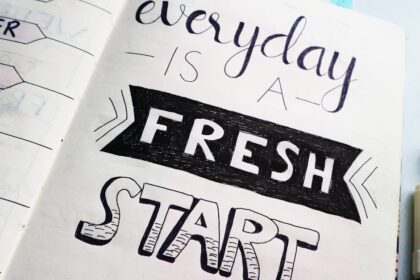 everyday
IS
A
FRESH
START
ER